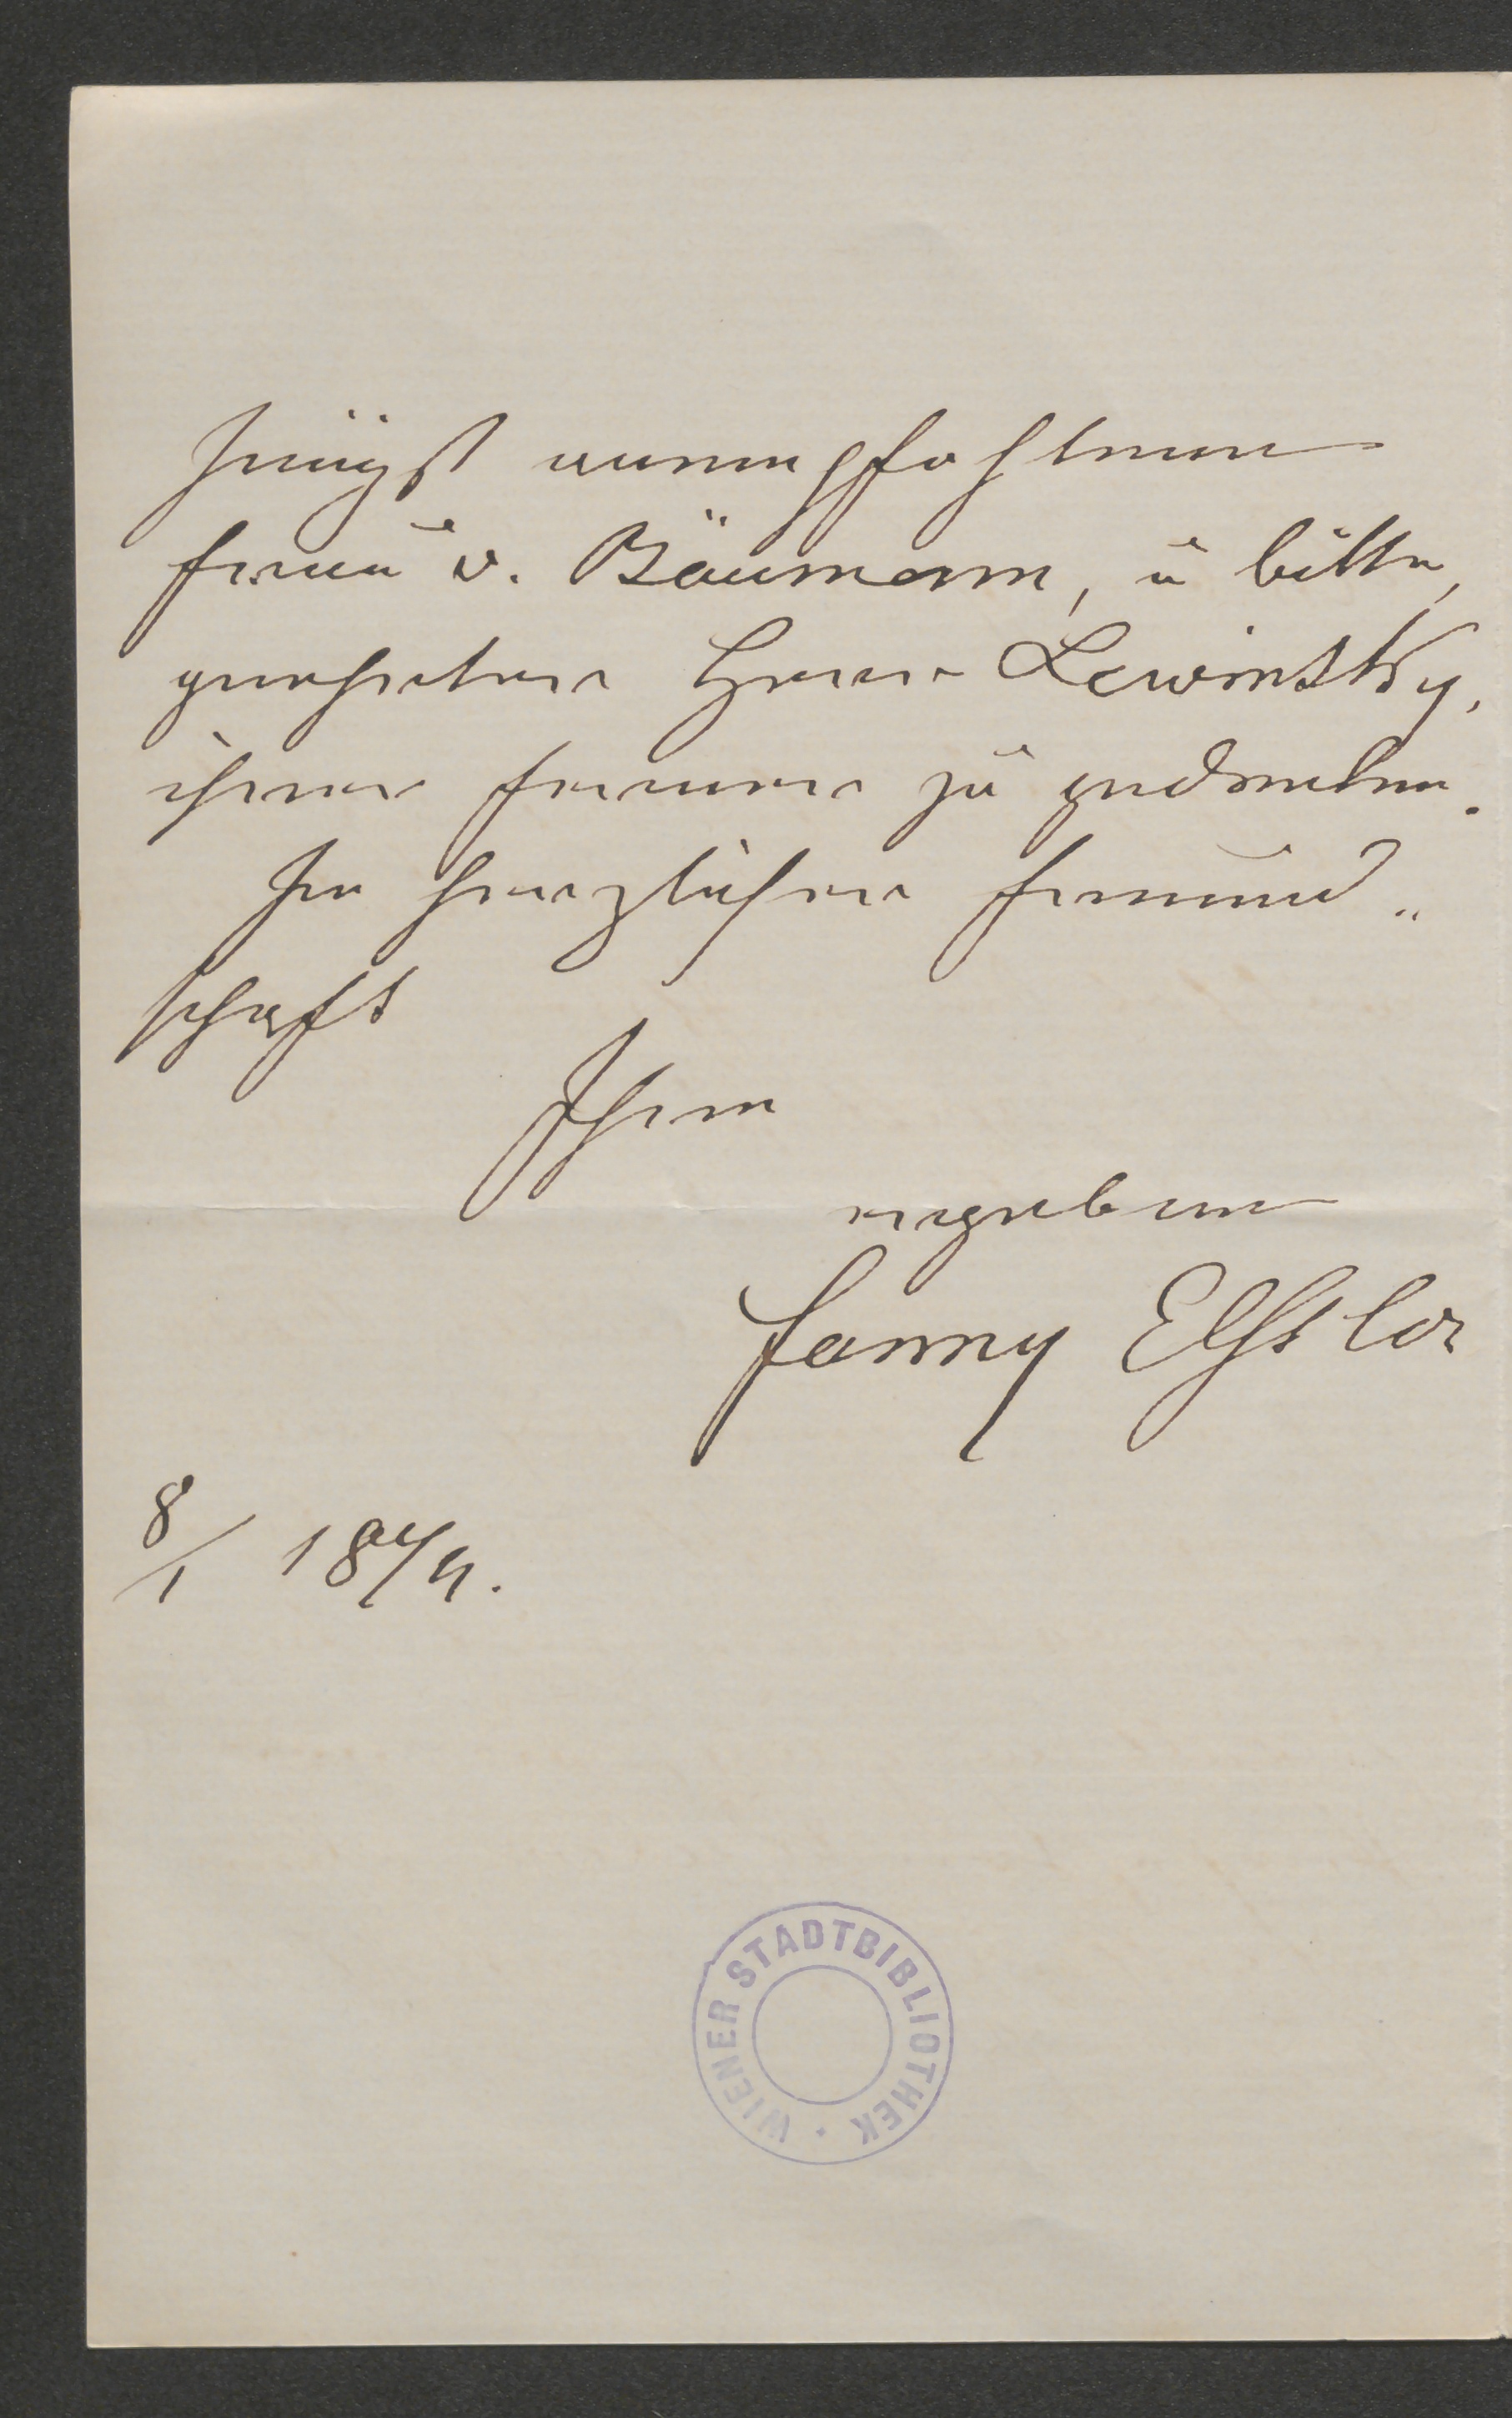 jüngst anempfohlenen
Frau v. Bäumann, u bitte,
geehrter Herr Lewinsky,
ihrer ferner zu gedenken.
In herzlicher Freund„
schaft
Ihre
ergebene
Fanny Elßler
8/1 1874.
WIENER STADTBIBLIOTHEK